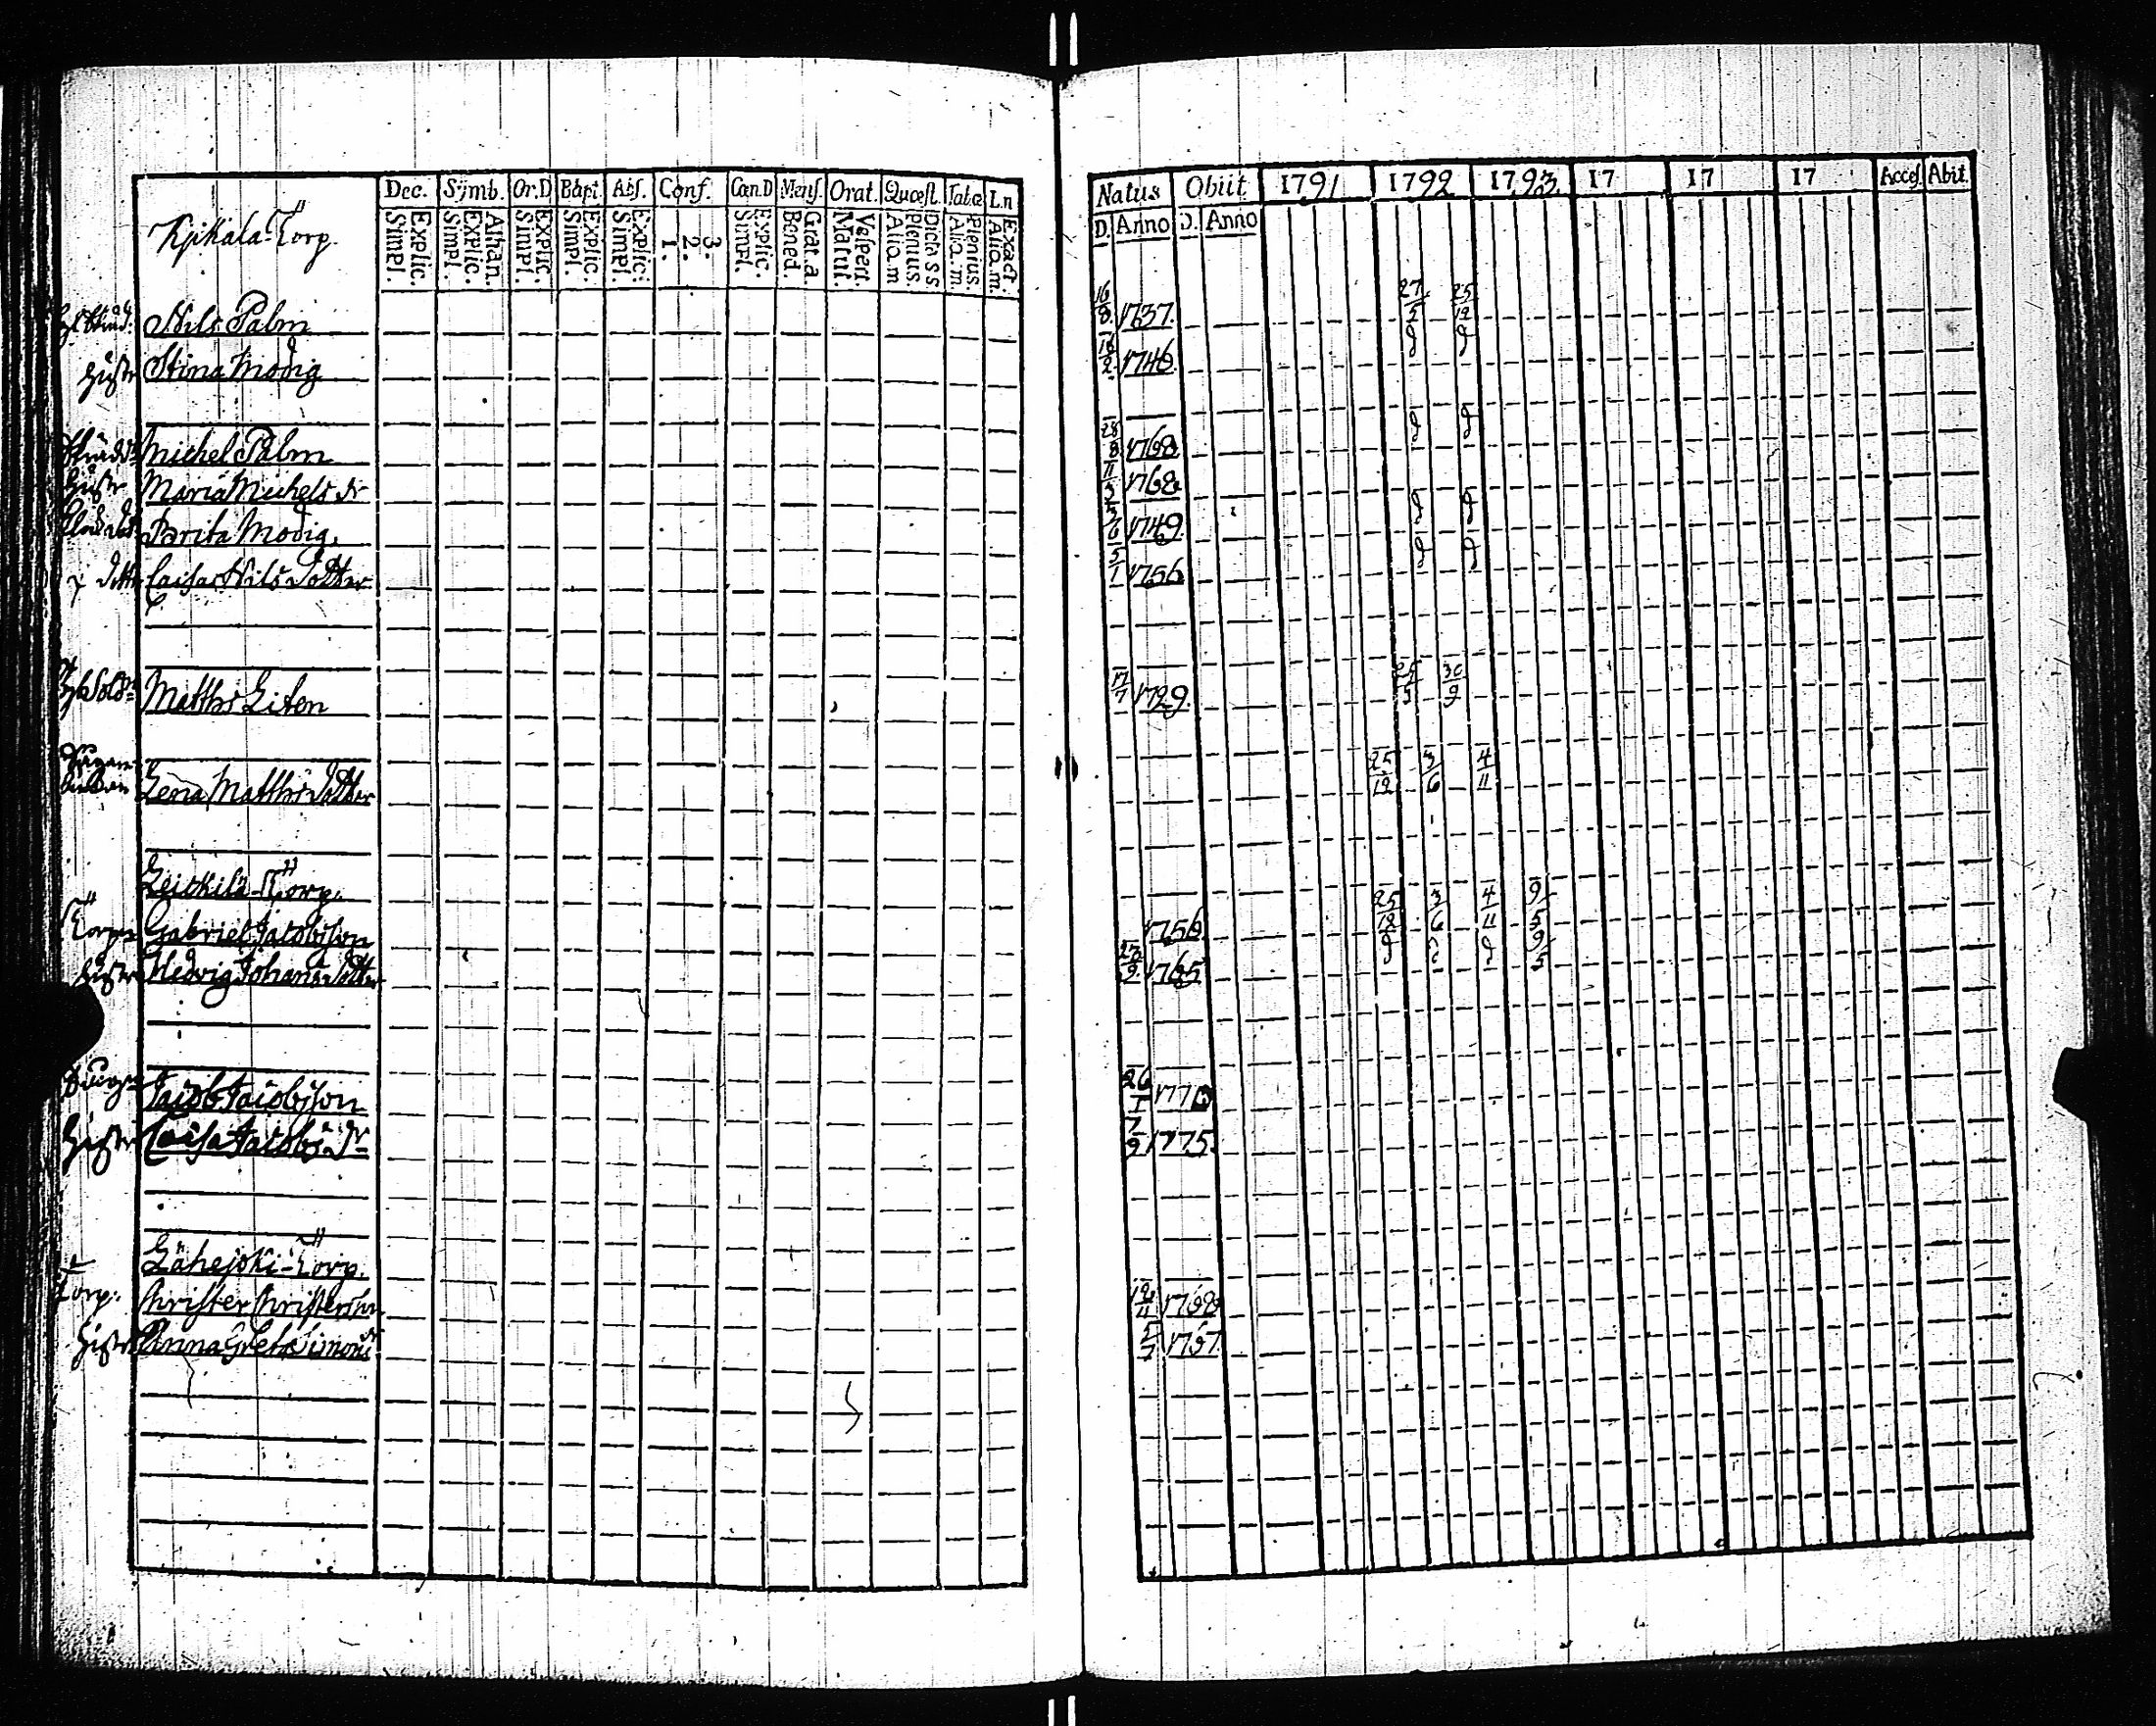 Kjikala-Torp.
Dec. Symb. Or.D Bapt. Abs. Conf. Cœn.D Mens. Orat. Quæst. Tab.œ L.n
Explic. Simpl. Athan. Explic. Simpl. Explic. Simpl. Explic. Simpl. Explic. Simpl. 3. 2. 1. Explic. Simpl. Grat.a. Bened. Vespert. Matut. Dicta S S Plenius. Aliq.m Plenius. Aliq.m. Exact. Aliq.m.
Natus Obiit 1791 1792 1793 17 17 17 Acces. Abit.
D. Anno D. Anno
Nils Palm 16/8 1737. 27/5 25/12
Hustr Stina Modig 1746.
Michel Palm 28/8 1768
Hustr Maria Michels dr 1768
Brita Modig. 1749.
ditto Caisa Nils Dotter 5/1 1756
Matths Liten 17/7 1729. 25/5 30/9
Lena Matths Dotter 25/12 3/6 4/11
Leickilä-Torp.
Torp Gabriel Jacobsson 1756 25/12 3/6 4/11 9/5
Hustr Hedvig Johans Dotter 1765 9/5
Jacob Jacobsson 26/1 177
Hustr Caisa Jacobs Dr 7/9 1775.
Lähejoki-Torp.
Torp. Christer Christersson 1768
Hustr Anna Greta Simons dr 1767